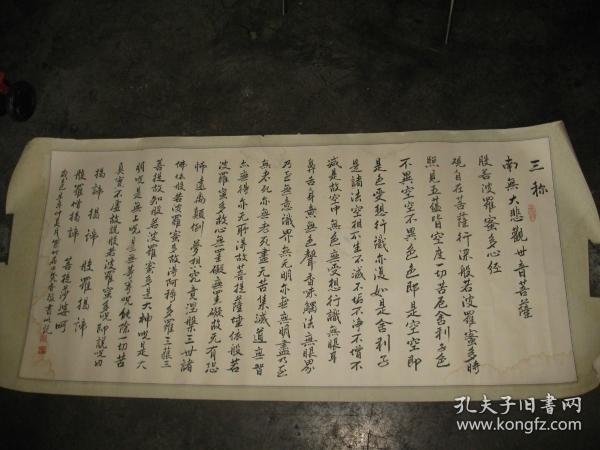 三称
南無大悲觀世音菩薩
般若波羅蜜多心經
觀自在菩薩行深般若波羅蜜多時
照見五蘊皆空度一切苦厄舍利子色
不異空空不異色色即是空空即
是色受想行識亦復如是舍利子
是諸法空相不生不滅不垢不淨不增不
減是故空中無色無受想行識無眼耳
鼻舌身意無色聲香味觸法無眼界
乃至無意識界無无明亦無無明盡乃至
無老死亦無老死盡无苦集滅道無智
亦無得亦无所得故菩提薩埵依般若
波羅蜜多故心無罣礙無罣礙故无有恐
怖遠離顛倒夢想究竟涅槃三世諸
佛依般若波羅蜜多故得阿耨多羅三藐三
菩提故知般若波羅蜜多是大神咒是大
明咒是無上咒是無等等咒能除一切苦
真實不虛故說般若波羅蜜多咒即說咒曰
揭諦揭諦 般羅揭諦
般羅僧揭諦 菩提莎婆呵
孔夫子旧书网
www.kongfz.com